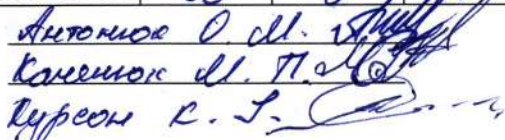 Антонюк О. М.
Канешок М. П.
Курсон К. І.